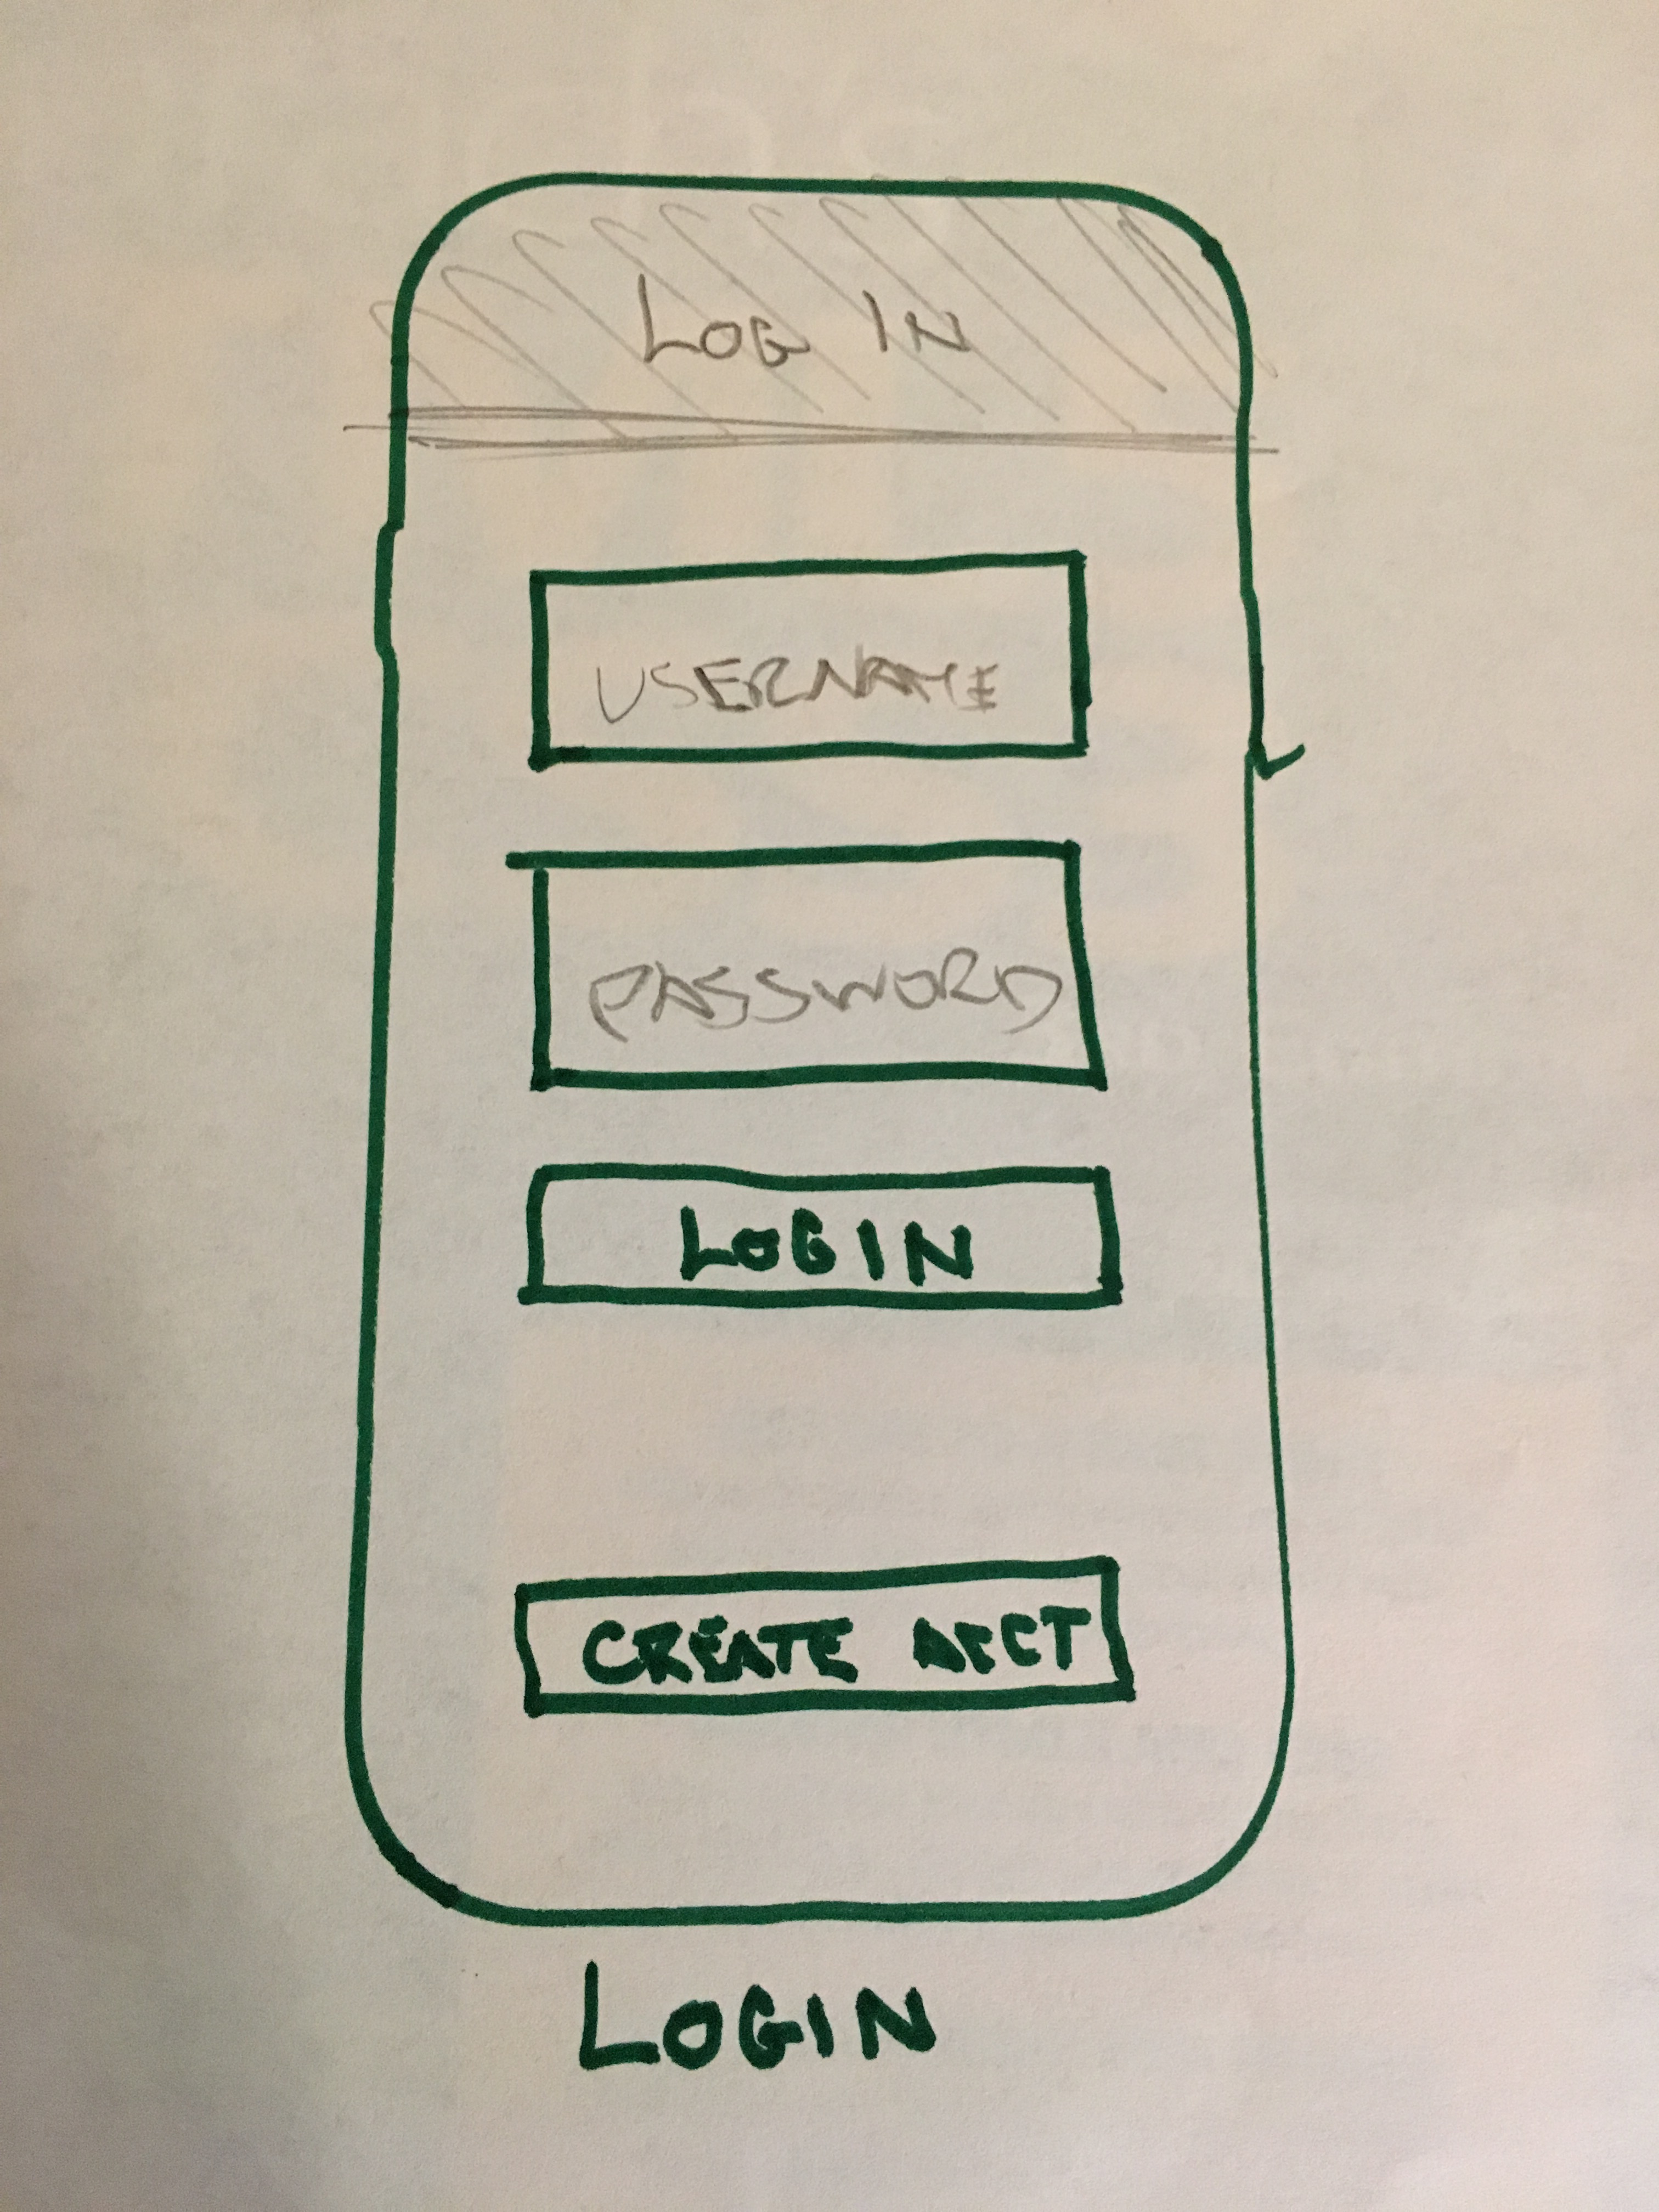 LOG IN
USERNAME
PASSWORD
LOGIN
CREATE ACCT
LOGIN